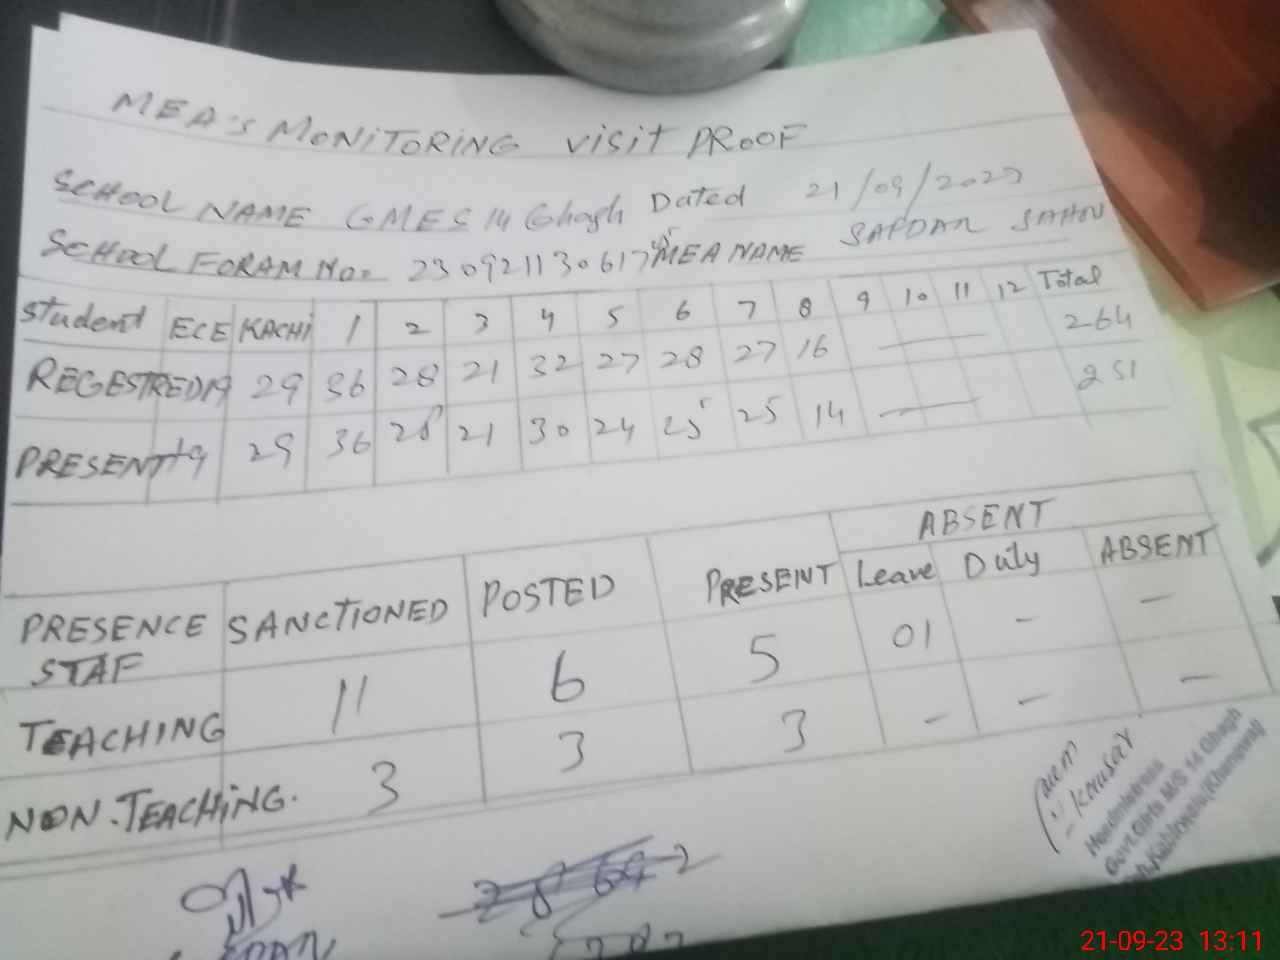 MEA'S MONITORING VISIT PROOF
SCHOOL NAME GMES 14 Ghagh Dated 21/09/2023
SCHOOL FORAM No= 230921130617 MEA NAME SAPDAR
Student ECE KACHI 1 2 3 4 5 6 7 8 9 10 11 12 Total
REGESTRED 19 29 36 28 21 32 27 28 27 16 — 264
PRESENT 19 29 36 28 21 30 24 25 25 14 — 251
ABSENT
PRESENCE STAF SANCTIONED POSTED PRESENT Leave Duly ABSENT
TEACHING 11 6 5 01 - -
NON.TEACHING. 3 3 3 - - -
Kousar
Headmistress
Govt.Girls M/S 14 Ghagh
21-09-23 13:11